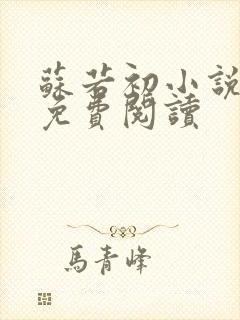 蘇若初小說
免費閱讀
馬青峰